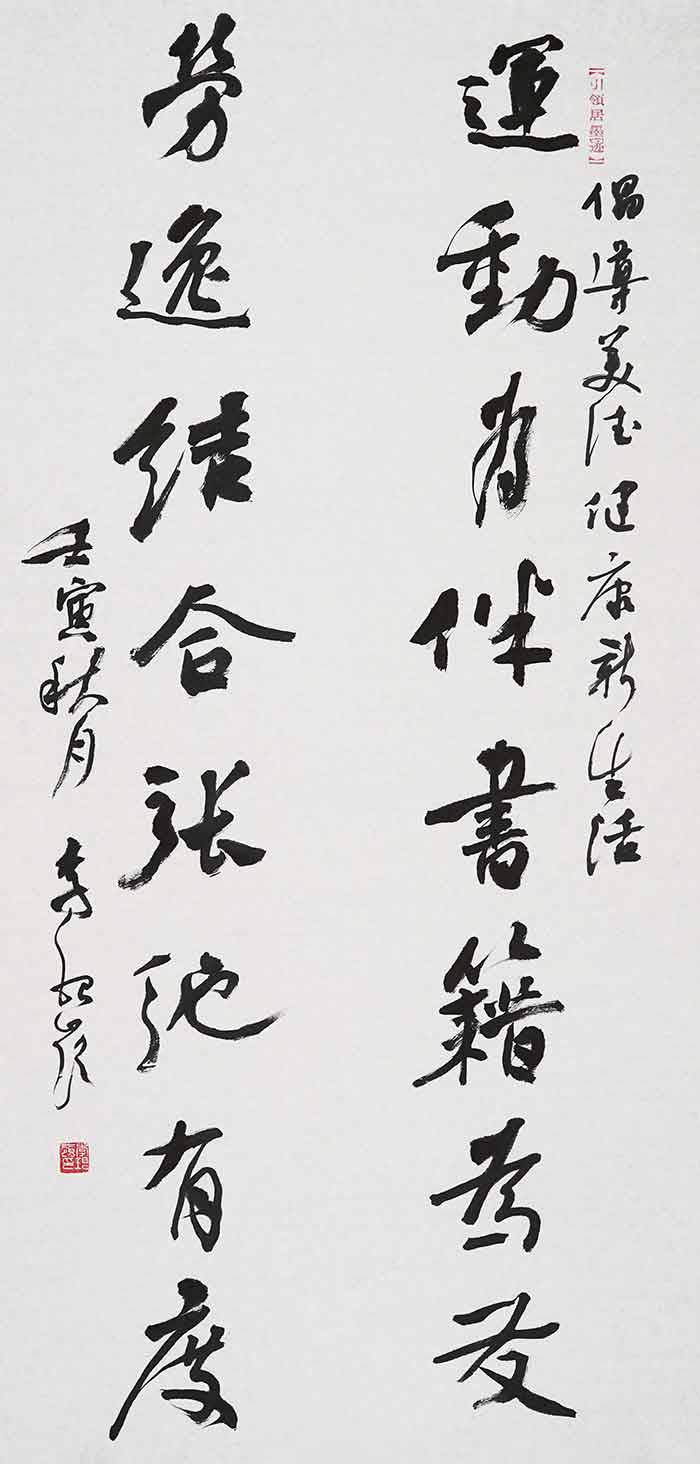 【引領居墨迹】
倡導美德健康新生活
運動有伴書籍為友
勞逸結合張弛有度
壬寅秋月